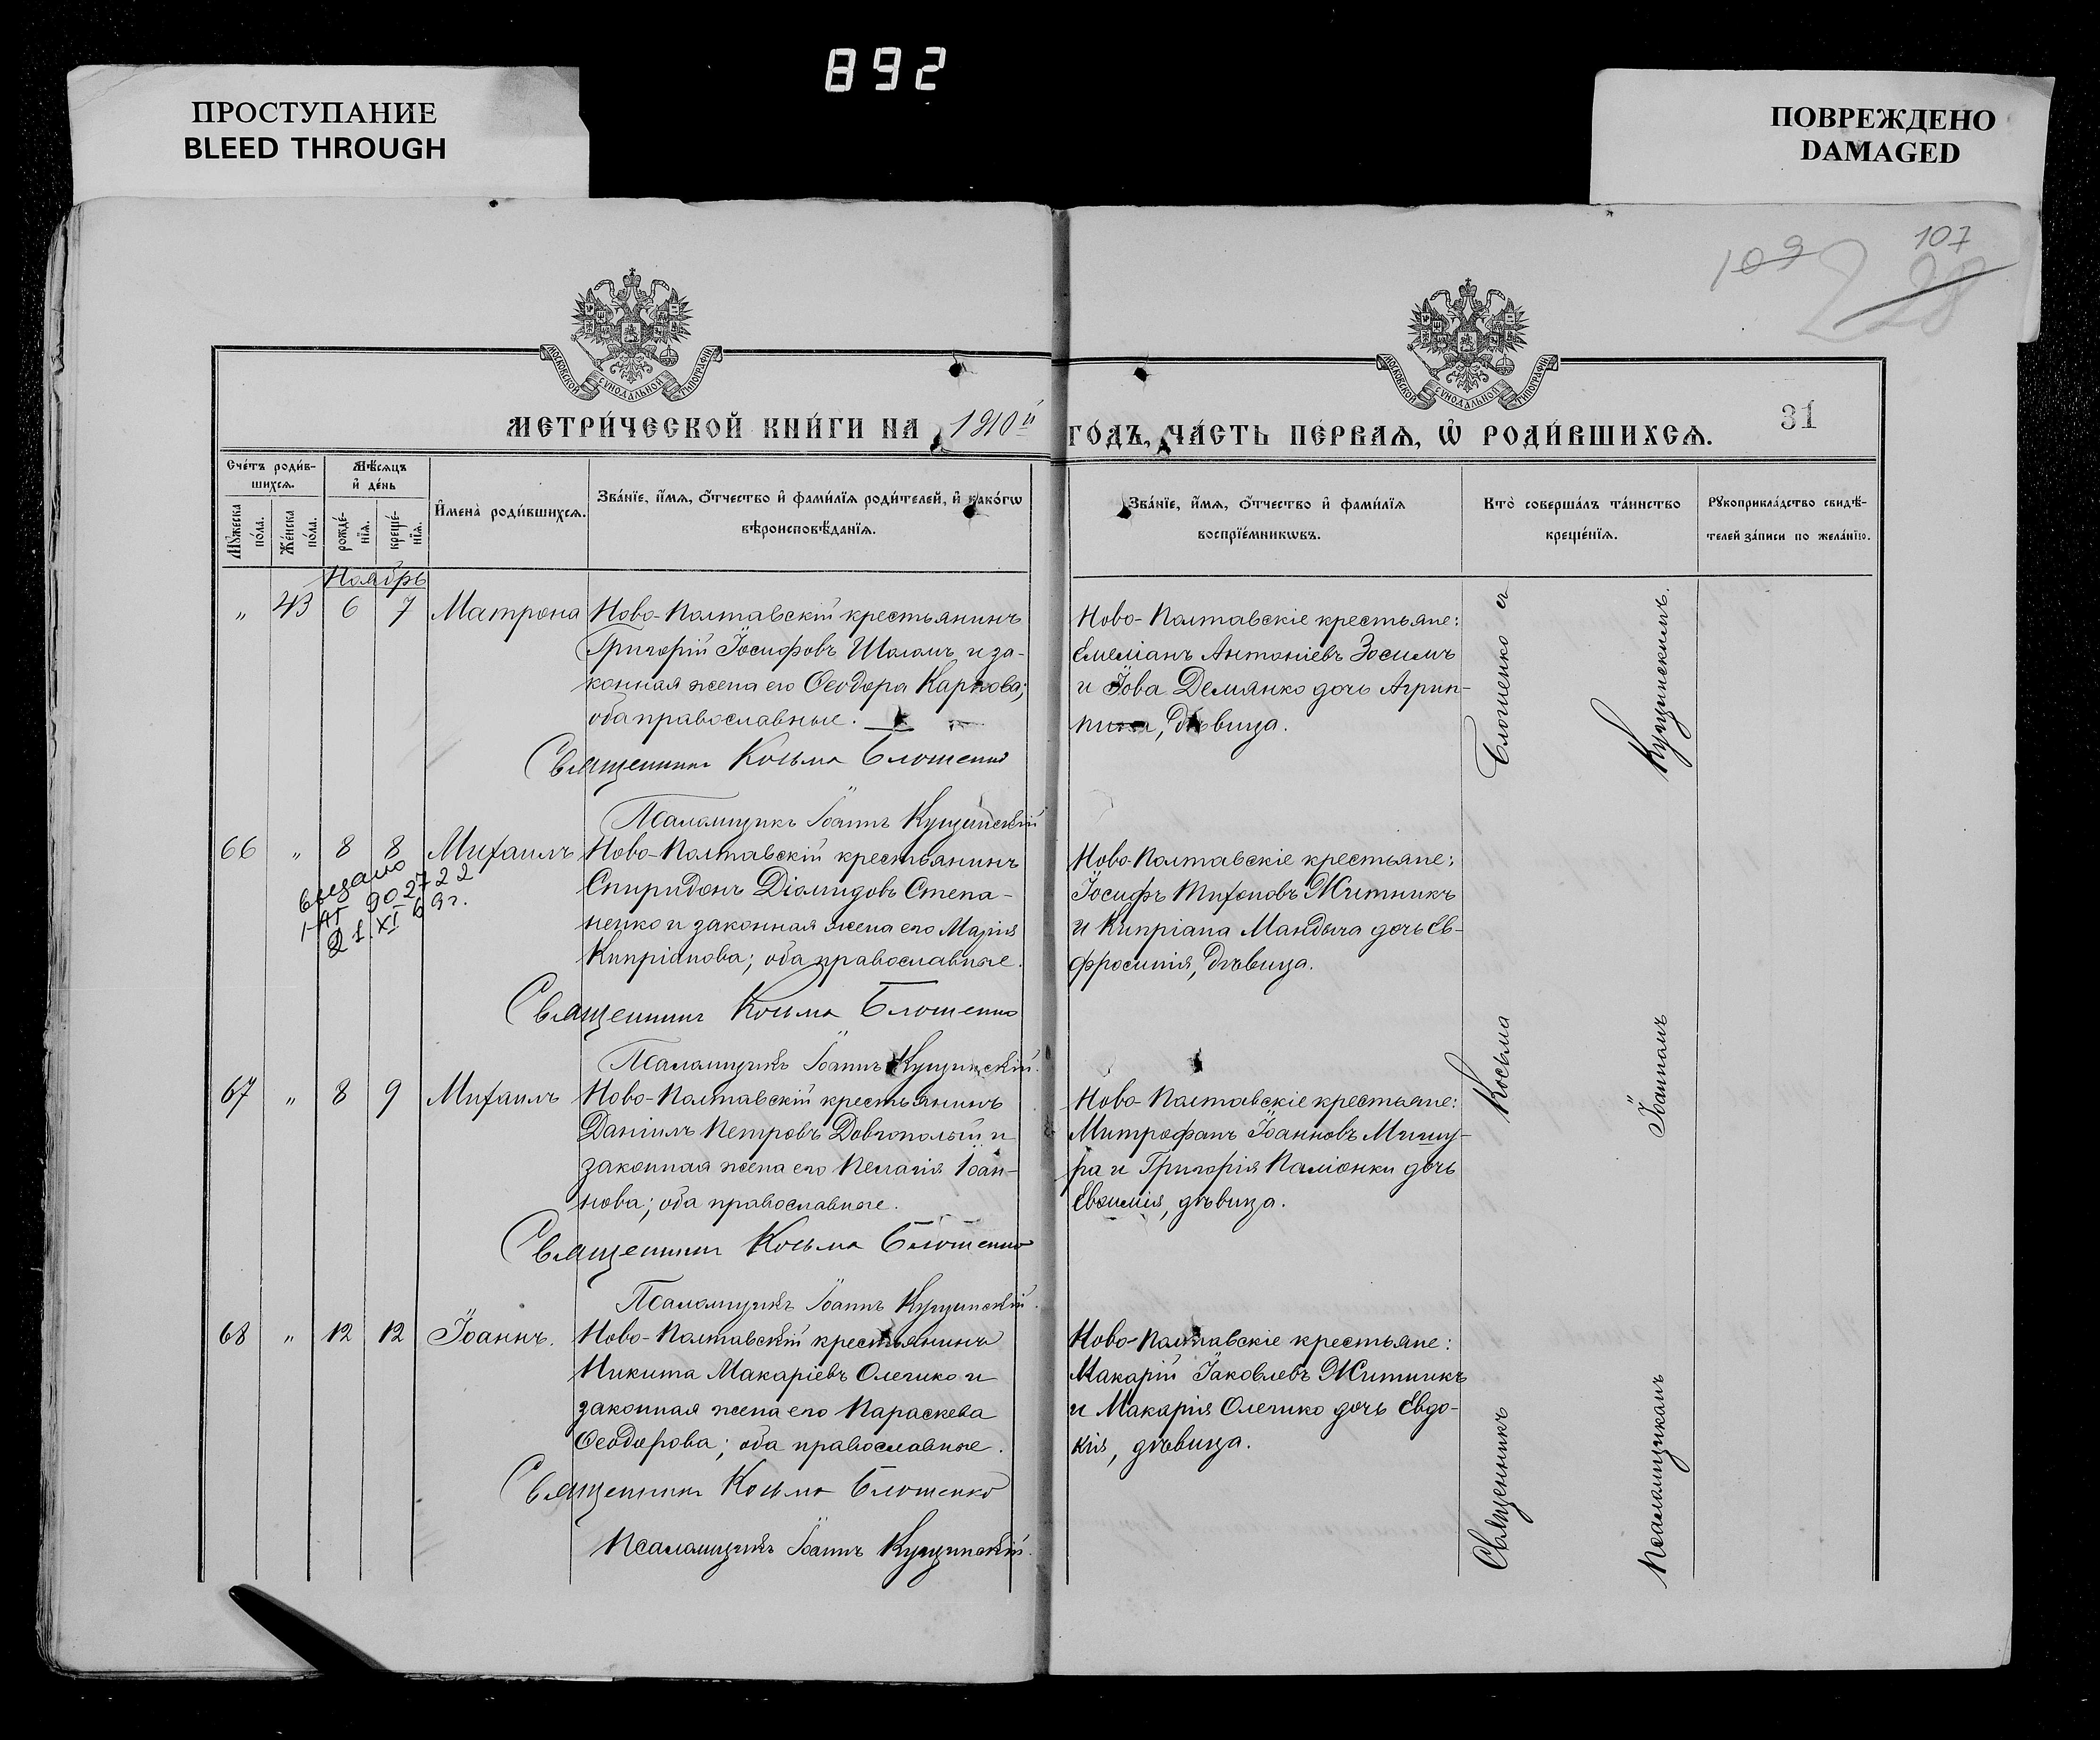 892
ПРОСТУПАНИЕ
BLEED THROUGH
ПОВРЕЖДЕНО
DAMAGED
109
107
228
МОСКОВСКОЙ СУНОДАЛЬНОЙ ТИПОГРАФІИ
МОСКОВСКОЙ СУНОДАЛЬНОЙ ТИПОГРАФІИ
МЕТРИ́ЧЕСКОЙ КНИ́ГИ НА 1910й ГО́ДЪ, ЧА́СТЬ ПЕ́РВАѦ, Ѡ҆ РОДИ́ВШИХСѦ.
31
Сче́тъ роди́в-
шихсѧ.
Мѣ́сѧцъ
и҆ де́нь
Мꙋ́жеска
по́ла.
Же́нска
по́ла.
рожде́-
нїѧ.
креще́-
нїѧ.
И҆мена̀ роди́вшихсѧ.
Зва́нїе, и҆́мѧ, ѻ҆́тчество и҆ фами́лїѧ роди́телей, и҆ како́гѡ
вѣроисповѣ́данїѧ.
Зва́нїе, и҆́мѧ, ѻ҆́тчество и҆ фами́лїѧ
воспрїе́мникѡвъ.
Кто̀ соверша́лъ та́инство
креще́нїѧ.
Рꙋкоприкла́дство свидѣ́-
телей за́писи по жела́нїю.
Ноябрь
" 43 6 7 Матрона
Ново-Полтавскій крестьянинъ
Григорій Іосифовъ Шаламъ и за-
конная жена его Ѳеодора Карпова;
оба православные.
Священникъ Косьма Блошенко
Псаломщикъ Іоаннъ Кущинскій
Ново-Полтавскіе крестьяне:
Емеліанъ Антоніевъ Зосимъ
и Іова Демянко дочь Агрип-
пина, дѣвица.
66 " 8 8 Михаилъ
выдано
I-АГ 902722
21.XI 69г.
Ново-Полтавскій крестьянинъ
Спиридонъ Діомидовъ Степа-
ненко и законная жена его Марія
Кипріанова; оба православные.
Священникъ Косьма Блошенко
Псаломщикъ Іоаннъ Кущинскій.
Ново-Полтавскіе крестьяне:
Іосифъ Тихоновъ Житникъ
и Кипріана Мандыча дочь Ев-
фросинія, дѣвица.
67 " 8 9 Михаилъ
Ново-Полтавскій крестьянинъ
Даніилъ Петровъ Довгополый и
законная жена его Пелагія Іоан-
нова; оба православные.
Священникъ Косьма Блошенко
Псаломщикъ Іоаннъ Кущинскій.
Ново-Полтавскіе крестьяне:
Митрофанъ Іоанновъ Мишу-
ра и Григорія Паліонки дочь
Евѳимія, дѣвица.
68 " 12 12 Іоаннъ.
Ново-Полтавскій крестьянинъ
Никита Макаріевъ Олепко и
законная жена его Параскева
Ѳеодорова; оба православные.
Священникъ Косьма Блошенко
Псаломщикъ Іоаннъ Кущинскій.
Ново-Полтавскіе крестьяне:
Макарій Іаковлевъ Житникъ
и Макарія Олепко дочь Евдо-
кія, дѣвица.
Священникъ Косьма Блошенко съ
Псаломщикомъ Іоанномъ Кущинскимъ.